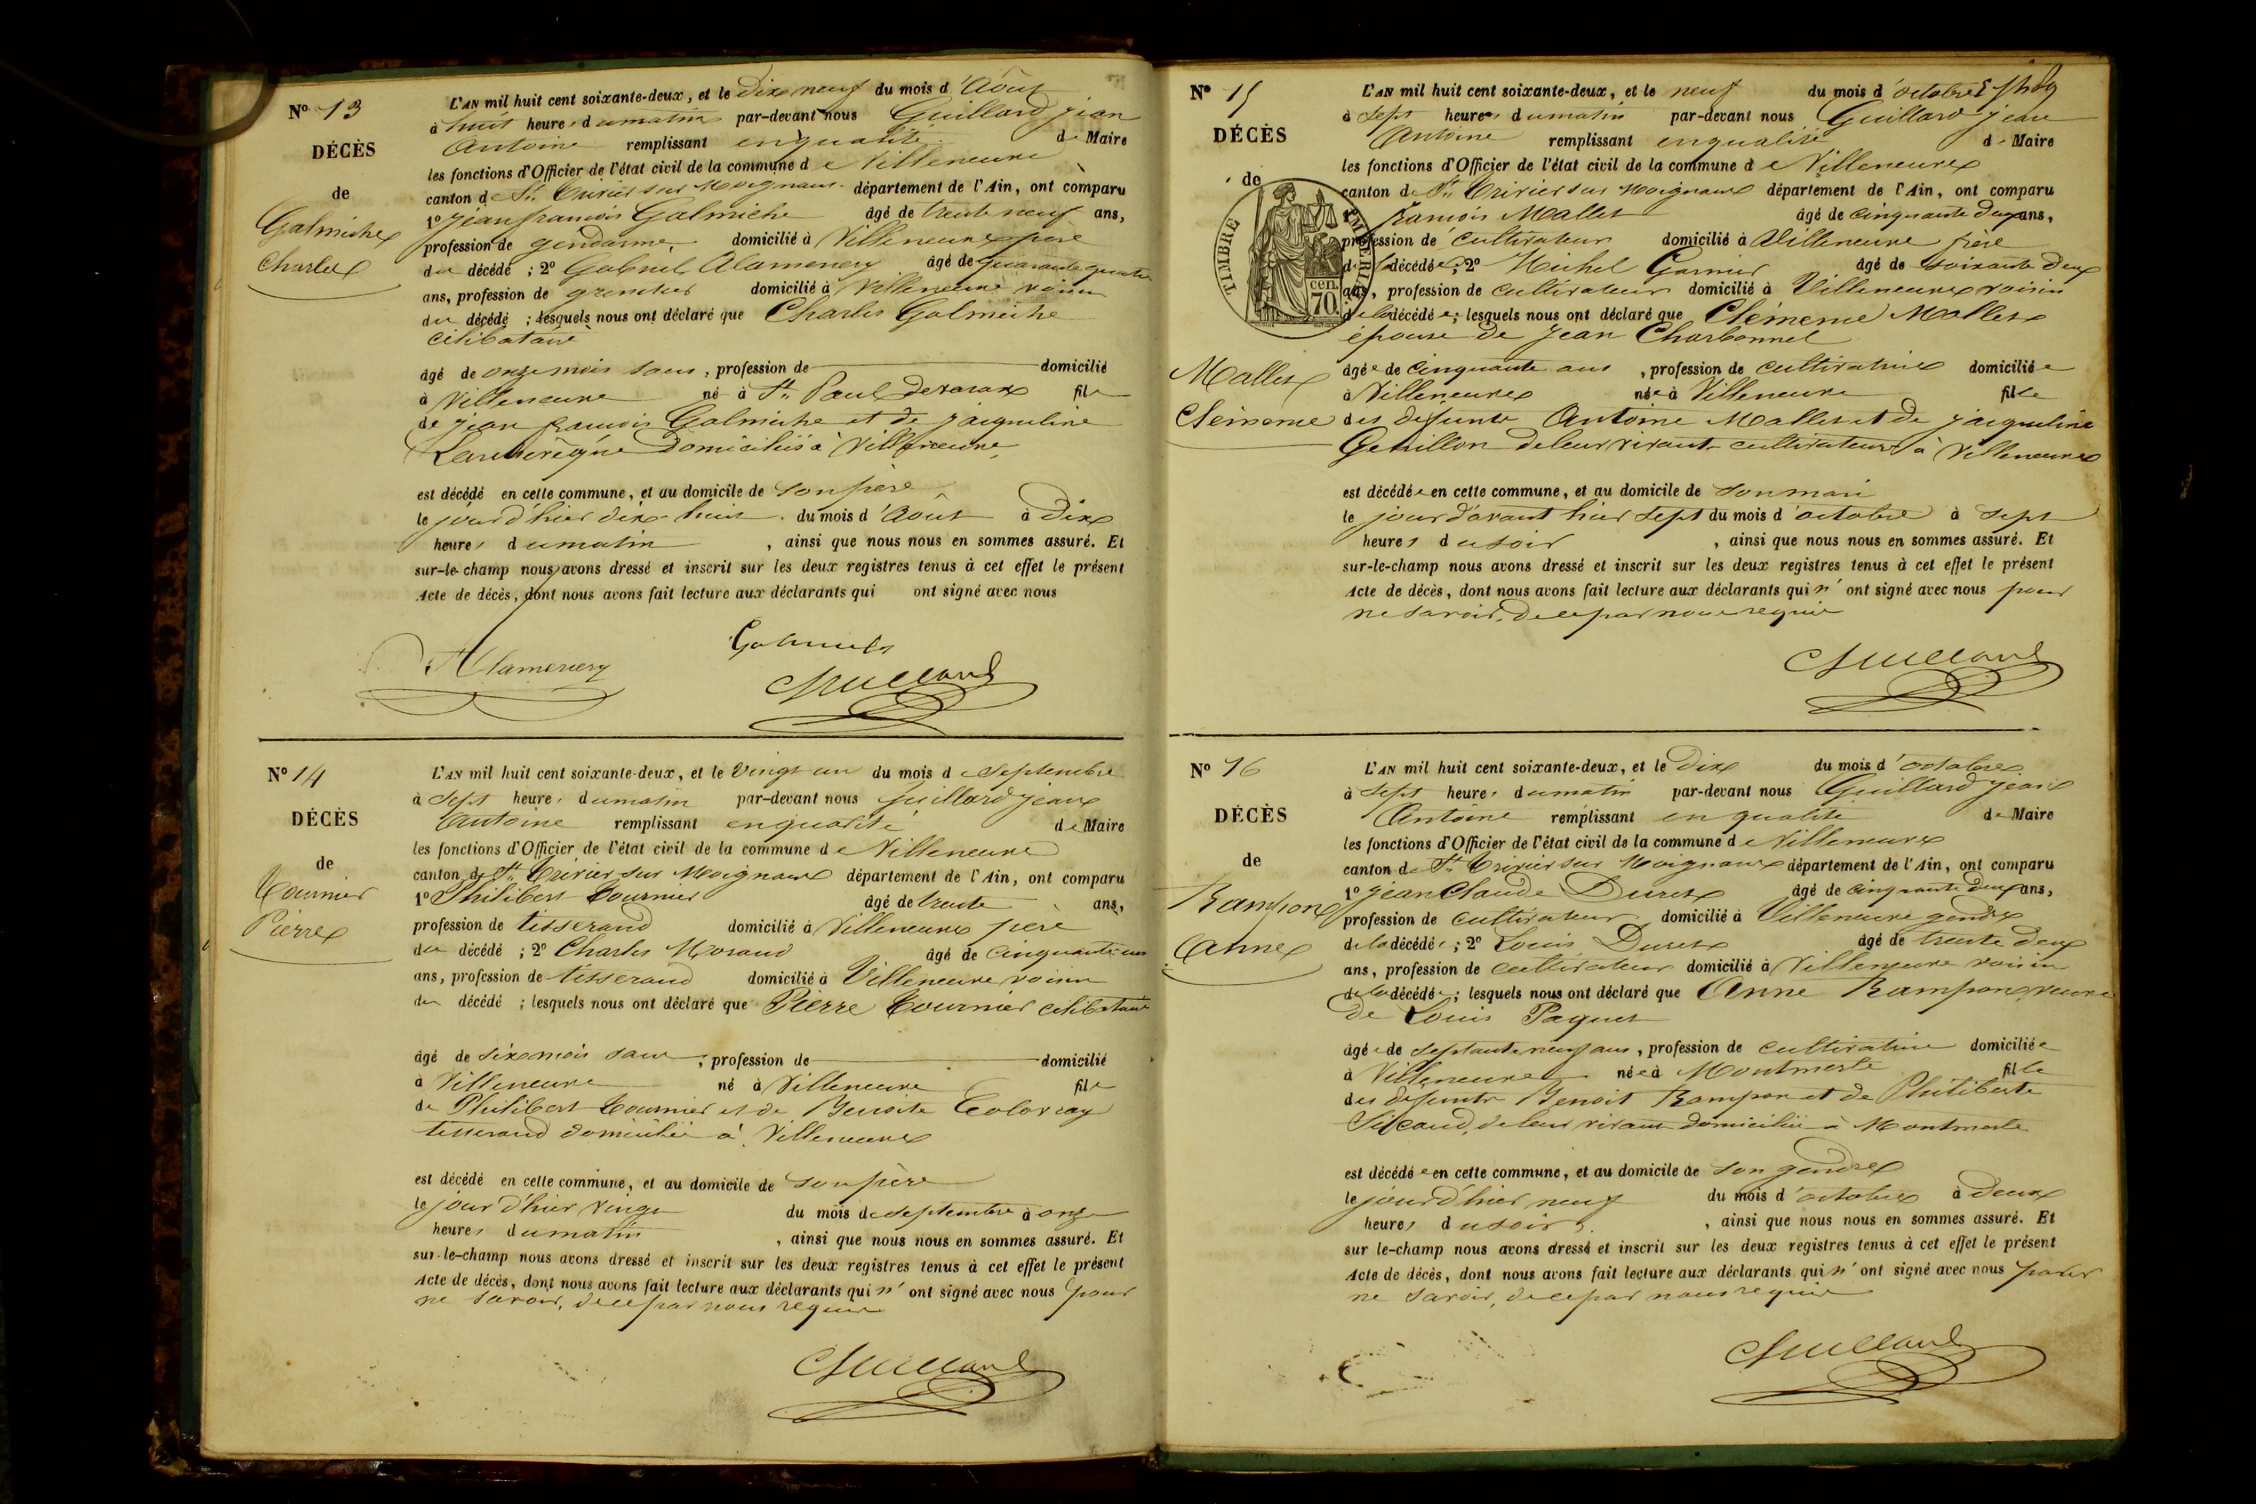 N° 13
DÉCÈS
de
Galmiche
Charles
L'AN mil huit cent soixante-deux, et le dix neuf du mois d'Août
à huit heures du matin par-devant nous Guillard jean
Antoine remplissant en qualité de Maire
les fonctions d'Officier de l'état civil de la commune de Villeneuve
canton de St. Trivier sur Moignans département de l'Ain, ont comparu
1° jean francois Galmiche âgé de trente neuf ans,
profession de gendarme, domicilié à Villeneuve père
du décédé ; 2° Gabriel Alamercery âgé de quarante quatre
ans, profession de domicilié à Villeneuve voisin
du décédé ; lesquels nous ont déclaré que Charles Galmiche
célibataire
âgé de onze mois sans, profession de domicilié
à Villeneuve né à St. Paul de varax fils
de jean francois Galmiche et de jacqueline
domiciliés à Villeneuve,
est décédé en cette commune, et au domicile de son père
le jour d'hier dix huit du mois d'Août à dix
heures du matin, ainsi que nous nous en sommes assuré. Et
sur-le-champ nous avons dressé et inscrit sur les deux registres tenus à cet effet le présent
Acte de décès, dont nous avons fait lecture aux déclarants qui ont signé avec nous
Galmiche
Alamercery
Guillard
N° 14
DÉCÈS
de
Tournier
Pierre
L'AN mil huit cent soixante-deux, et le vingt un du mois de Septembre
à Sept heures du matin par-devant nous Guillard jean
Antoine remplissant en qualité de Maire
les fonctions d'Officier de l'état civil de la commune de Villeneuve
canton de St. Trivier sur Moignans département de l'Ain, ont comparu
1° Philibert Tournier âgé de trente ans,
profession de tisserand domicilié à Villeneuve père
du décédé ; 2° Charles Morand âgé de cinquante un
ans, profession de tisserand domicilié à Villeneuve voisin
du décédé ; lesquels nous ont déclaré que Pierre Tournier célibataire
âgé de six mois sans, profession de domicilié
à Villeneuve né à Villeneuve fils
de Philibert Tournier et de Benoite
tisserand domiciliés à Villeneuve
est décédé en cette commune, et au domicile de son père
le jour d'hier vingt du mois de septembre à onze
heures du matin, ainsi que nous nous en sommes assuré. Et
sur-le-champ nous avons dressé et inscrit sur les deux registres tenus à cet effet le présent
Acte de décès, dont nous avons fait lecture aux déclarants qui n'ont signé avec nous pour
ne savoir, de ce par nous requis
Guillard
N° 15
DÉCÈS
de
TIMBRE IMPÉRIAL
70 cen.
Mallet
Clémence
L'AN mil huit cent soixante-deux, et le neuf du mois d'octobre
à Sept heures du matin par-devant nous Guillard jean
Antoine remplissant en qualité de Maire
les fonctions d'Officier de l'état civil de la commune de Villeneuve
canton de St. Trivier sur Moignans département de l'Ain, ont comparu
1° francois Mallet âgé de cinquante deux ans,
profession de cultivateur domicilié à Villeneuve frère
de la décédée ; 2° Michel Garnier âgé de soixante deux
ans, profession de cultivateur domicilié à Villeneuve voisin
de la décédée ; lesquels nous ont déclaré que Clémence Mallet
épouse de jean Charbonnet
âgée de cinquante ans, profession de cultivatrice domiciliée
à Villeneuve née à Villeneuve fille
des défunts Antoine Mallet et de jacqueline
Genillon de leur vivant cultivateurs à Villeneuve
est décédée en cette commune, et au domicile de son mari
le jour d'avant hier sept du mois d'octobre à sept
heures du soir, ainsi que nous nous en sommes assuré. Et
sur-le-champ nous avons dressé et inscrit sur les deux registres tenus à cet effet le présent
Acte de décès, dont nous avons fait lecture aux déclarants qui n'ont signé avec nous pour
ne savoir, de ce par nous requis
Guillard
N° 16
DÉCÈS
de
Rampon
Anne
L'AN mil huit cent soixante-deux, et le dix du mois d'octobre
à sept heures du matin par-devant nous Guillard jean
Antoine remplissant en qualité de Maire
les fonctions d'Officier de l'état civil de la commune de Villeneuve
canton de St. Trivier sur Moignans département de l'Ain, ont comparu
1° jean Claude Duret âgé de cinquante deux ans,
profession de cultivateur domicilié à Villeneuve gendre
de la décédée ; 2° Louis Duret âgé de trente deux
ans, profession de cultivateur domicilié à Villeneuve voisin
de la décédée ; lesquels nous ont déclaré que Anne Rampon veuve
de Louis Paquet
âgée de septante neuf ans, profession de cultivatrice domiciliée
à Villeneuve née à Montmerle fille
des défunts Benoit Rampon et de Philiberte
de leur vivant domiciliés à Montmerle
est décédée en cette commune, et au domicile de son gendre
le jour d'hier neuf du mois d'octobre à deux
heures du soir, ainsi que nous nous en sommes assuré. Et
sur le-champ nous avons dressé et inscrit sur les deux registres tenus à cet effet le présent
Acte de décès, dont nous avons fait lecture aux déclarants qui n'ont signé avec nous pour
ne savoir, de ce par nous requis
Guillard